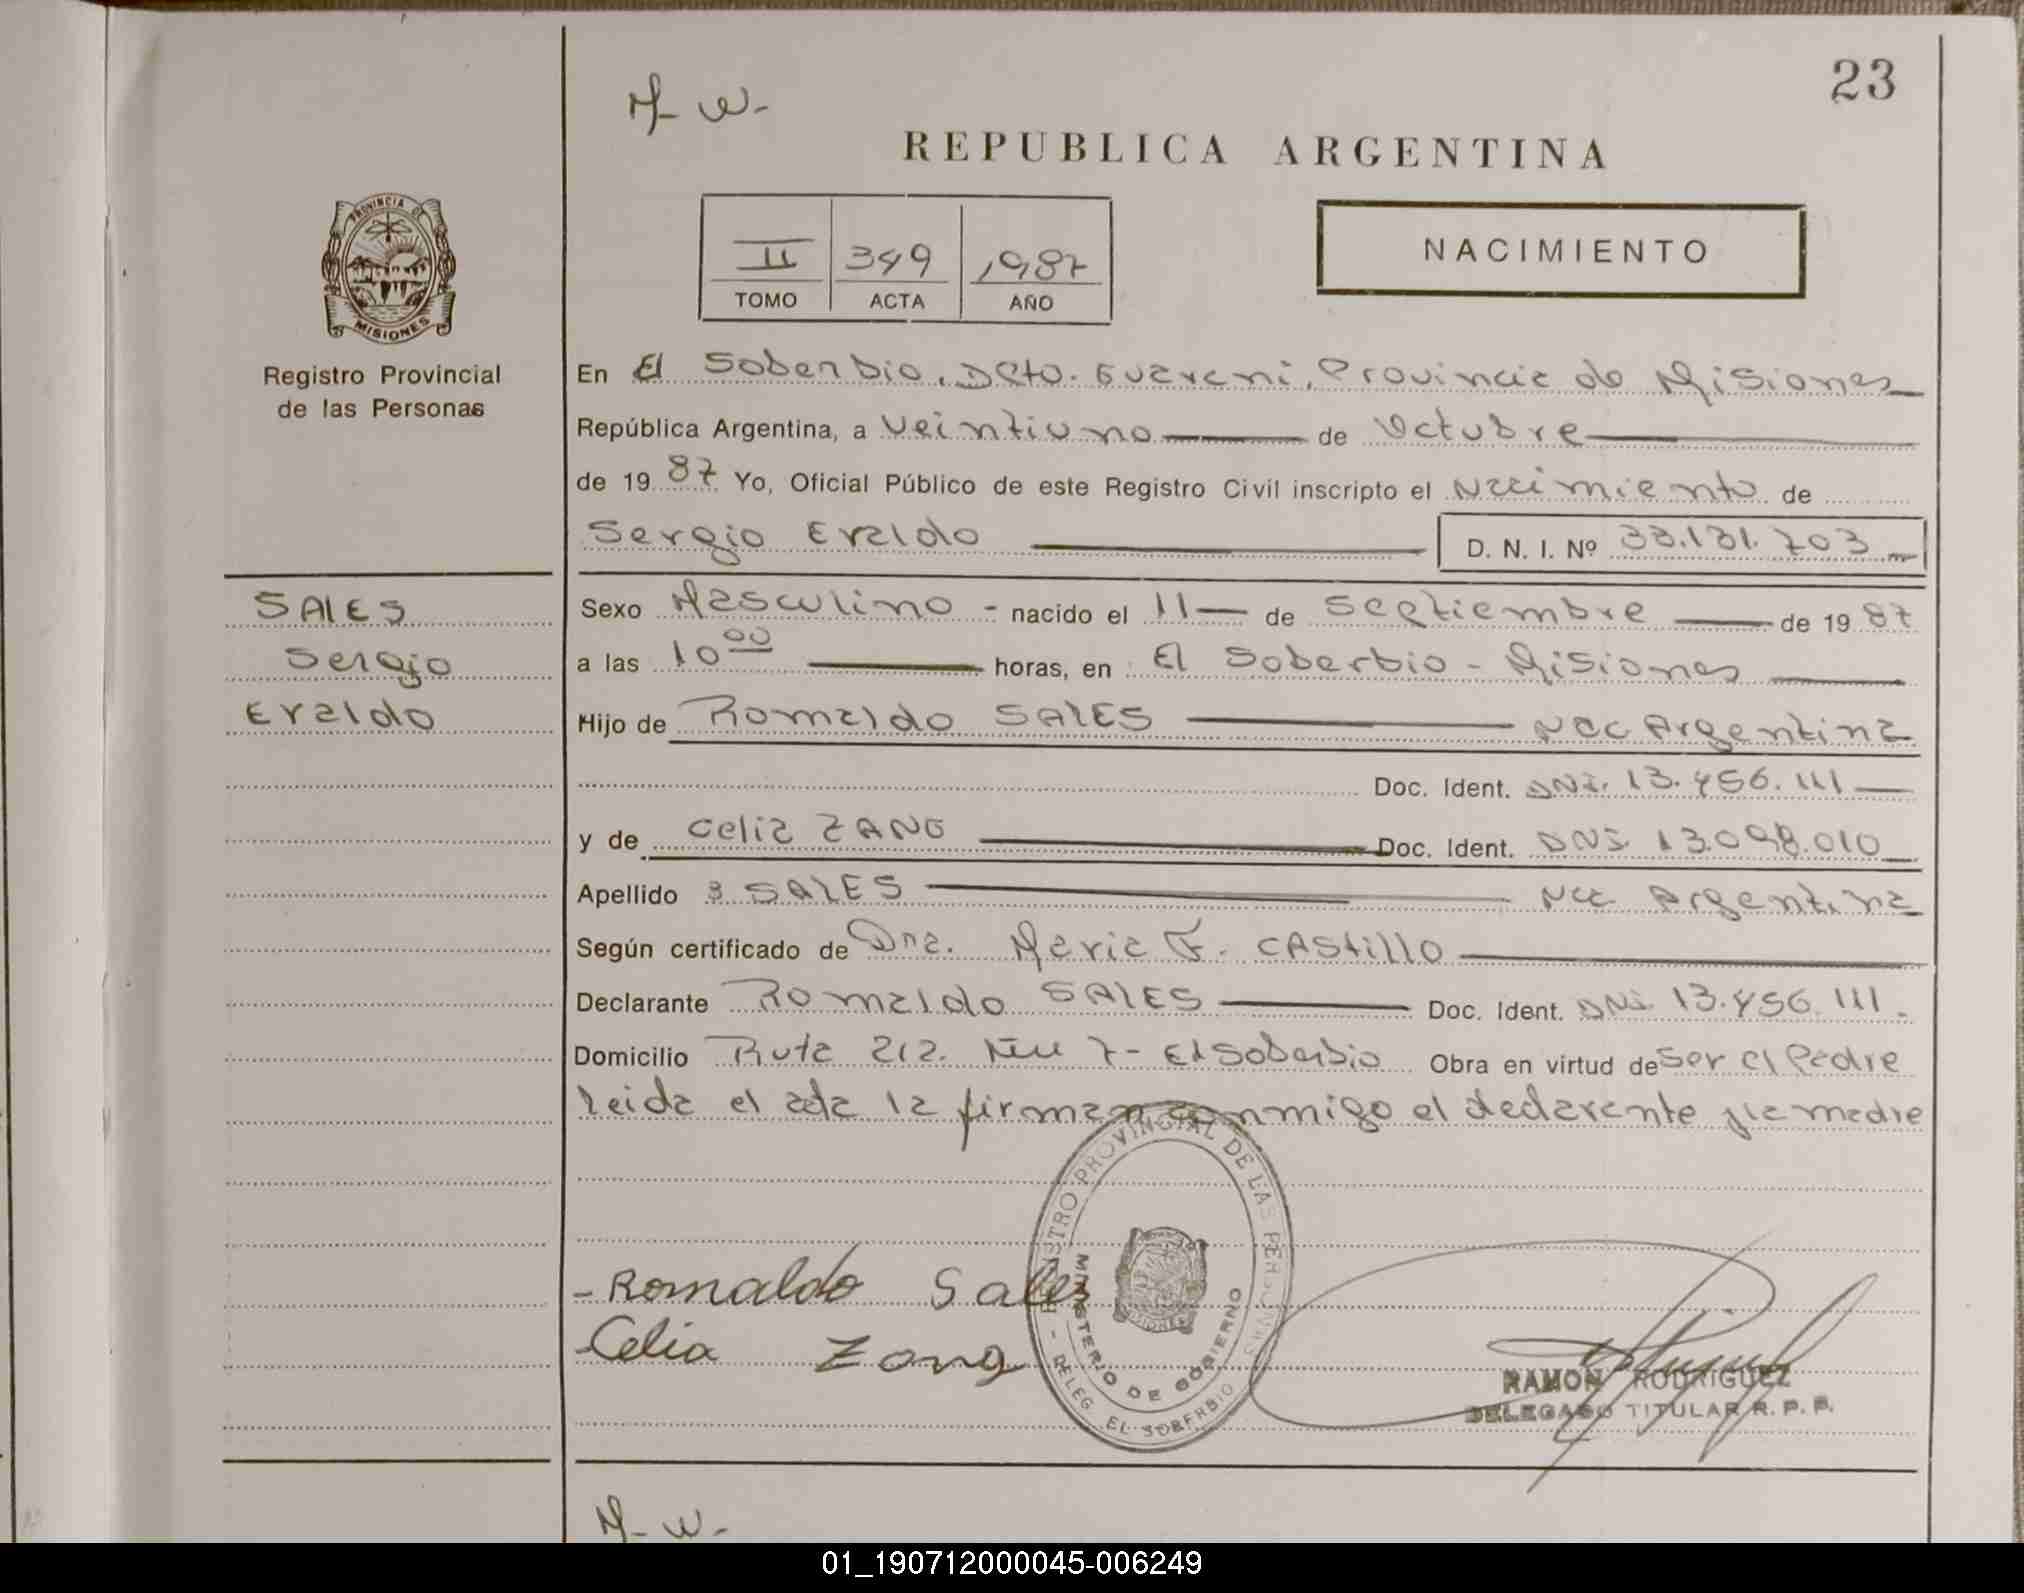 23
M- W-
REPUBLICA ARGENTINA
II 349 1987
TOMO ACTA AÑO
NACIMIENTO
PROVINCIA DE MISIONES
Registro Provincial
de las Personas
En El Soberbio, Dpto. Guarani, Provincia de Misiones
República Argentina, a veintiuno de Octubre
de 1987 Yo, Oficial Público de este Registro Civil inscripto el Nacimiento de
Sergio Eraldo D. N. I. Nº 33.131.703
SALES
Sergio
Eraldo
Sexo Masculino - nacido el 11 de Septiembre de 1987
a las 10 00 horas, en El Soberbio - Misiones
Hijo de Romaldo SALES Nac Argentina
Doc. Ident. DNI. 13.456.111
y de Celia ZANG Doc. Ident. DNI 13.098.010
Apellido SALES Nac Argentina
Según certificado de Dra. Maria F. CAStillo
Declarante Romaldo SALES Doc. Ident. DNI 13.456.111.
Domicilio Ruta 212. Km 7 - El Soberbio Obra en virtud de Ser el Padre
leida el acta la firman conmigo el declarante y la madre
- Romaldo Sales
- Celia Zang
REGISTRO PROVINCIAL DE LAS PERSONAS - DELEG. EL SOBERBIO
MINISTERIO DE GOBIERNO
RAMON RODRIGUEZ
DELEGADO TITULAR R. P. P.
M- W-
01_190712000045-006249